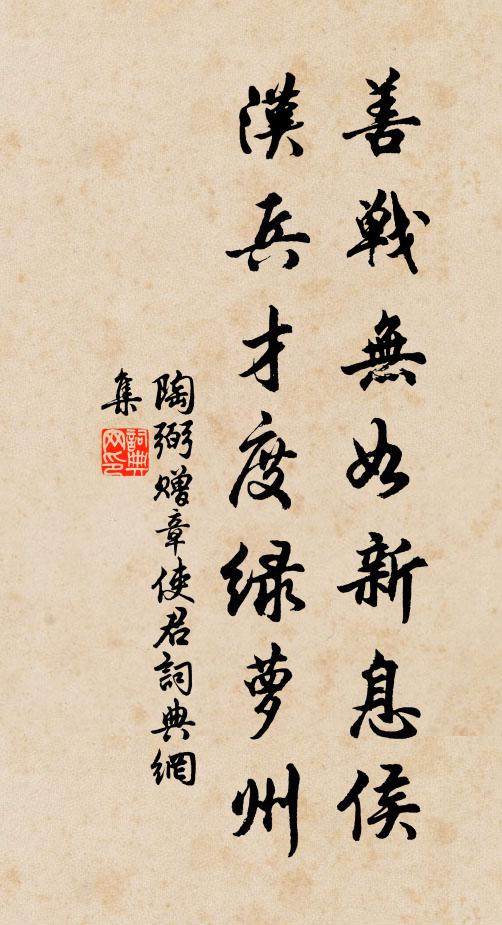 善戰無如新息侯
漢兵才度绿萝州
陶弼赠章使君詞典網
集
詞典网印